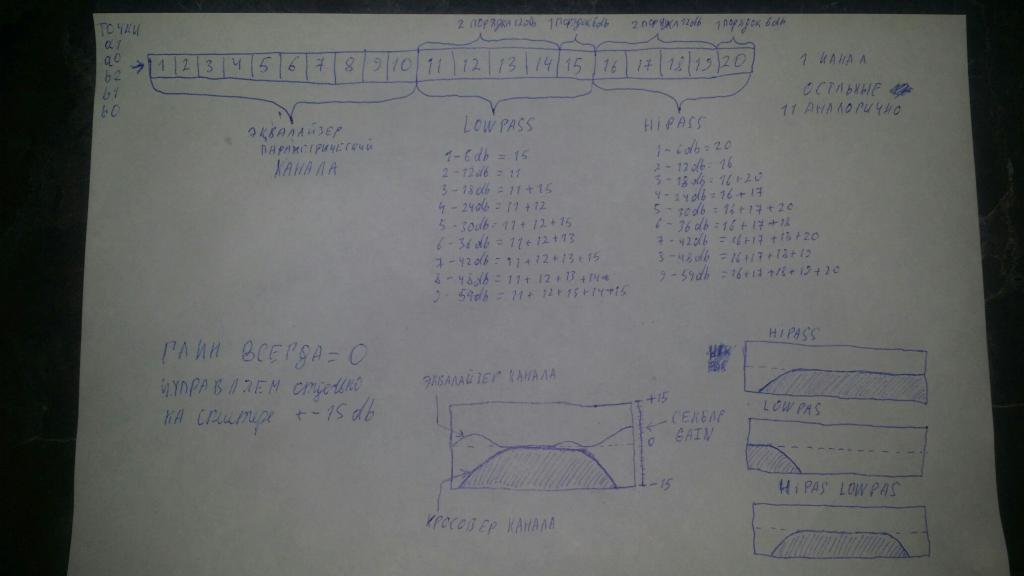 ТОЧКИ
a1
a0
b2
b1
b0
2 порядка 12db
1 порядок 6db
2 порядка 12db
1 порядок 6db
1 2 3 4 5 6 7 8 9 10 11 12 13 14 15 16 17 18 19 20
1 КАНАЛ
ОСТЛЬНЫЕ
11 АНАЛОГИЧНО
ЭКВАЛАЙЗЕР
ПАРАМЕТРИЧЕСКИЙ
КАНАЛА
LOWPASS
1-6db = 15
2-12db = 11
3-18db = 11+15
4-24db = 11+12
5-30db = 11+12+15
6-36db = 11+12+13
7-42db = 11+12+13+15
8-48db = 11+12+13+14
9-54db = 11+12+13+14+15
HIPASS
1-6db = 20
2-12db = 16
3-18db = 16+20
4-24db = 16+17
5-30db = 16+17+20
6-36db = 16+17+18
7-42db = 16+17+18+20
8-48db = 16+17+18+19
9-54db = 16+17+18+19+20
ГЕИН ВСЕГДА = 0
УПРАВЛЯЕМ отдельно
НА сплитере +-15 db
ЭКВАЛАЙЗЕР КАНАЛА
+15
0
-15
GAIN
КРОСОВЕР КАНАЛА
HIPASS
LOWPAS
HIPAS LOWPAS